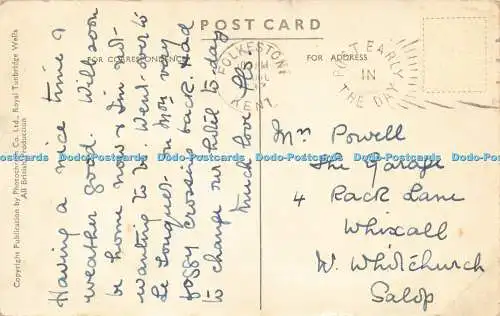 POST CARD
FOR CORRESPONDENCE
FOR ADDRESS
Copyright Publication by Photochrom Co. Ltd., Royal Tunbridge Wells
All British Production
Having a nice time &
weather good. Will soon
be home now & I'm not
wanting to be. Went over to
Le Touquet on Mon very
foggy crossing back. Had
to change our hotel to-day
Much love Flo.
FOLKESTONE
KENT
POST EARLY
IN
THE DAY
Mrs Powell
The Garage
4 Rack Lane
Whixall
W. Whitchurch
Salop
Dodo-Postcards Dodo-Postcards Dodo-Postcards Dodo-Postcards Dodo-Postcards